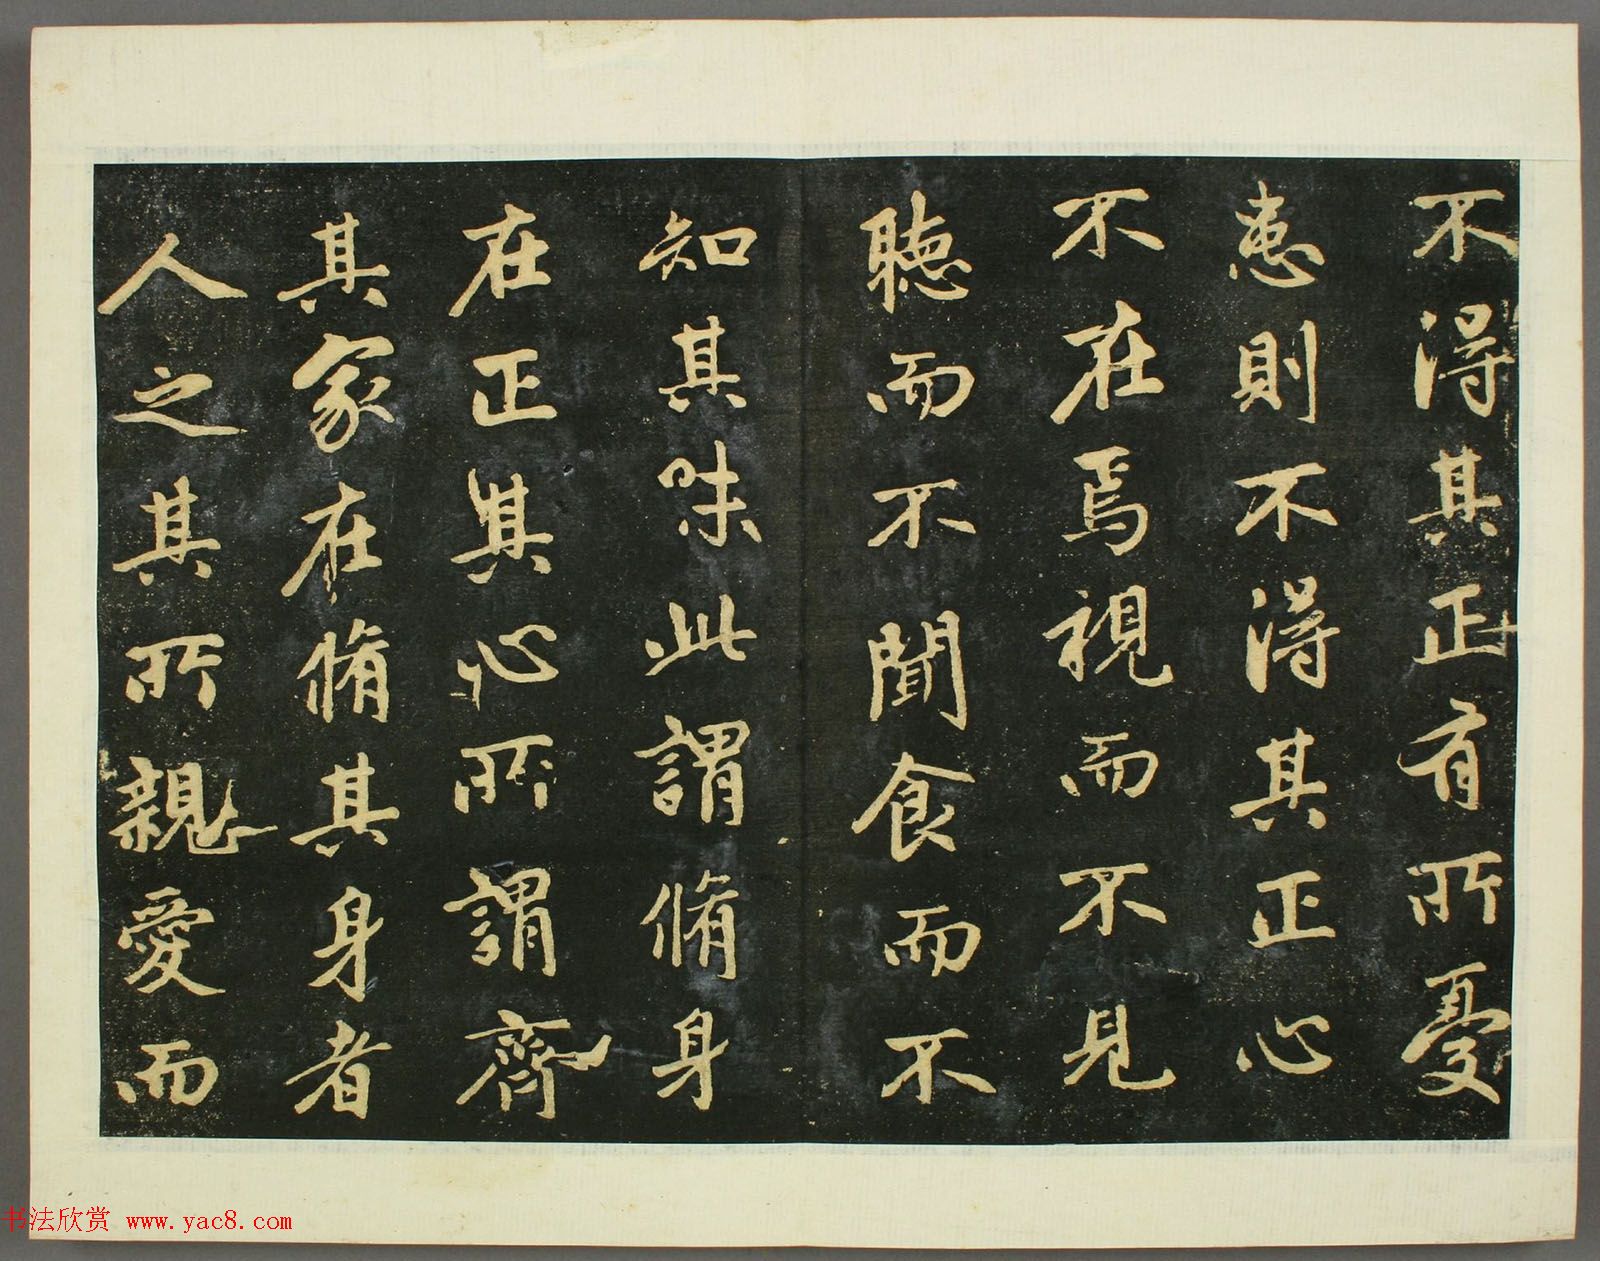 不得其正有所憂
患則不得其正心
不在焉視而不見
聽而不聞食而不
知其味此謂脩身
在正其心所謂齊
其家在脩其身者
人之其所親愛而
书法欣赏 www.yac8.com